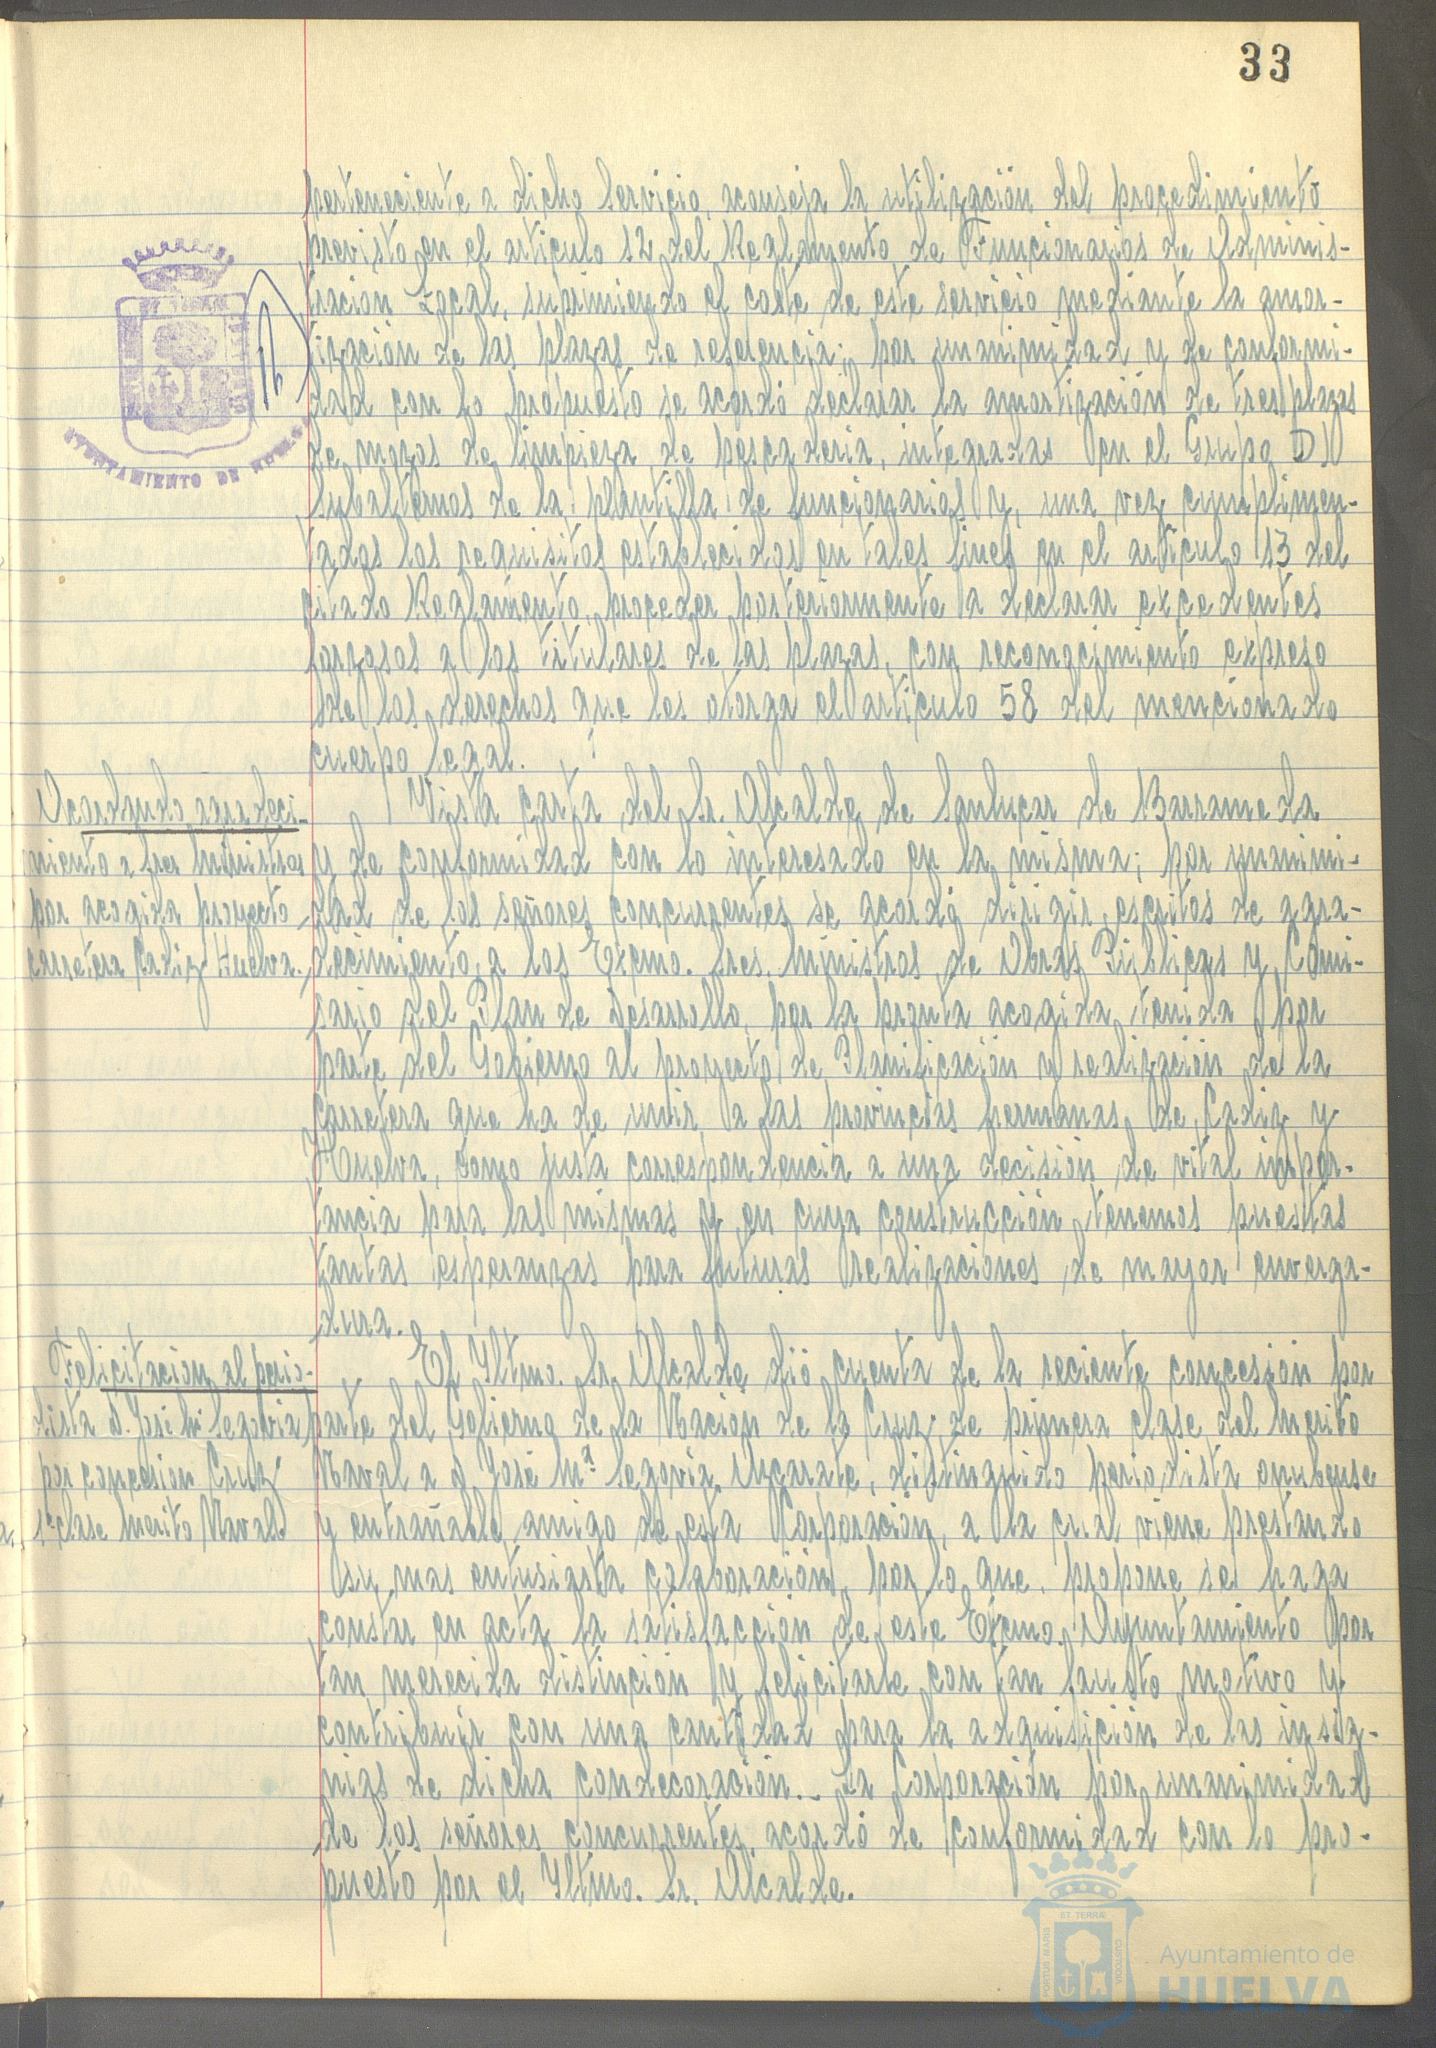 33
perteneciente a dicho Servicio, aconseja la utilización del procedimiento
previsto en el artículo 12 del Reglamento de Funcionarios de Adminis-
tración Local, suprimiendo el coste de este servicio mediante la amor-
tización de las plazas de referencia; por unanimidad y de conformi-
dad con lo propuesto se acordó declarar la amortización de tres plazas
de mozos de limpieza de pescadería, integradas en el Grupo D)
Subalternos de la plantilla de funcionarios y, una vez cumplimen-
tados los requisitos establecidos en tales fines en el artículo 13 del
citado Reglamento, proceder posteriormente a declarar excedentes
forzosos a los titulares de las plazas, con reconocimiento expreso
de los derechos que les otorga el artículo 58 del mencionado
cuerpo legal.
AYUNTAMIENTO DE HUELVA
Acordando agradeci-
miento a Sres Ministros
por acogida proyecto
carretera Cadiz Huelva.
Vista carta del Sr. Alcalde de Sanlucar de Barrameda
y de conformidad con lo interesado en la misma; por unanimi-
dad de los señores concurrentes se acordó dirigir escritos de agra-
decimiento a los Excmo. Sres. Ministros de Obras Públicas y Comi-
sario del Plan de Desarrollo, por la pronta acogida tenida por
parte del Gobierno al proyecto de Planificación y realización de la
Carretera que ha de unir a las provincias hermanas de Cadiz y
Huelva, como justa correspondencia a una decisión de vital impor-
tancia para las mismas y en cuya construcción tenemos puestas
tantas esperanzas para futuras realizaciones de mayor enverga-
dura.
Felicitación al perio-
dista D. José Mª Segovia
por concesion Cruz
1ª clase Merito Naval
El Iltmo. Sr. Alcalde dió cuenta de la reciente concesión por
parte del Gobierno de la Nación de la Cruz de primera clase del Merito
Naval a D. José Mª Segovia Azcarate, distinguido periodista onubense
y entrañable amigo de esta Corporación, a la cual viene prestando
su mas entusiasta colaboración, por lo que, propone se haga
constar en acta la satisfacción de este Excmo. Ayuntamiento por
tan merecida distinción y felicitarle con tan fausto motivo y
contribuir con una cantidad para la adquisición de las insig-
nias de dicha condecoración.- La Corporación por unanimidad
de los señores concurrentes acordó de conformidad con lo pro-
puesto por el Iltmo. Sr. Alcalde.
PORTUS MARIS
ET TERRÆ
CUSTODIA
Ayuntamiento de
HUELVA